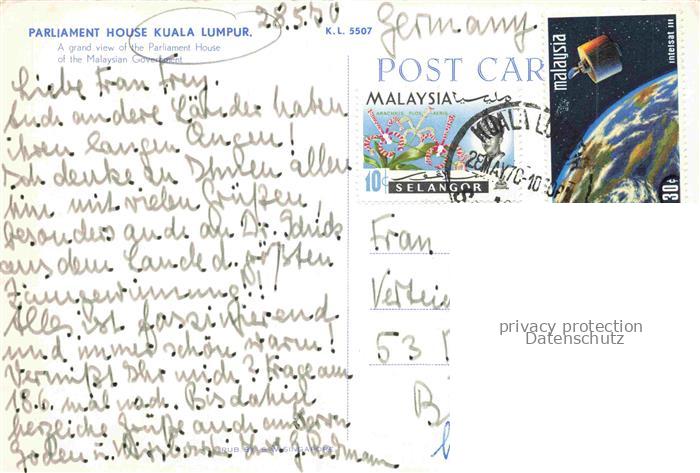 28.5.70
Germany
PARLIAMENT HOUSE KUALA LUMPUR.
K.L. 5507
A grand view of the Parliament House
of the Malaysian Government
POST CAR
Liebe Frau Frey
auch andere Länder haben
ihren langen
Ich denke an Ihnen allen
hin mit vielen Grüßen
besonders auch an Dr.
aus dem Lande d. größten
Alles ist faszinierend
und immer schön warm!
Vermißt Ihr mich? Frage am
18.6. mal nach Bis dahin
herzliche Grüße auch an Herrn
MALAYSIA
ARACHNIS FLOS-AERIS
10¢
SELANGOR
KUALA LU
malaysia
intelsat III
30¢
Frau
Vertei
53
B
privacy protection
Datenschutz